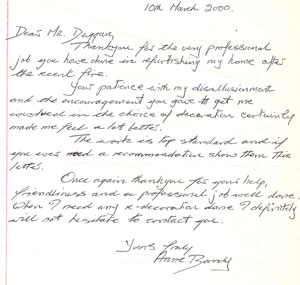 10th March 2000.
Dear Mr. Duggan,
Thankyou for the very professional
job you have done in refurbishing my home after
the recent fire.
Your patience with my disallusionment
and the encouragement you gave to get me
involved in the choice of decoration certainly
made me feel a lot better.
The work is top standard and if
you ever need a recommendation show them this
letter.
Once again thankyou for your help,
friendliness and a professional job well done.
When I need any re-decoration done I definitely
will not hesitate to contact you.
Yours truly
Anne